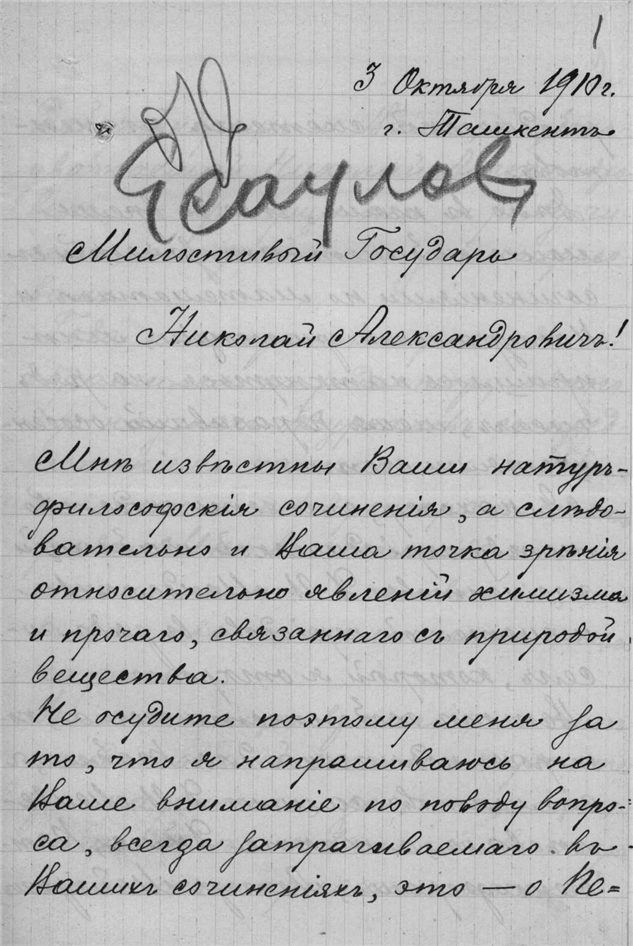 1
3 Октября 1910 г.
г. Ташкентъ
Есаулов
Милостивый Государь
Николай Александровичъ!
Мнѣ извѣстны Ваши натуръ-
философскія сочиненія, а слѣдо-
вательно и Ваша точка зрѣнія
относительно явленій химизма
и прочаго, связаннаго съ природой
вещества.
Не осудите поэтому меня за
то, что я напрашиваюсь на
Ваше вниманіе по поводу вопро-
са, всегда затрагиваемаго въ
Вашихъ сочиненіяхъ, это — о Пе=